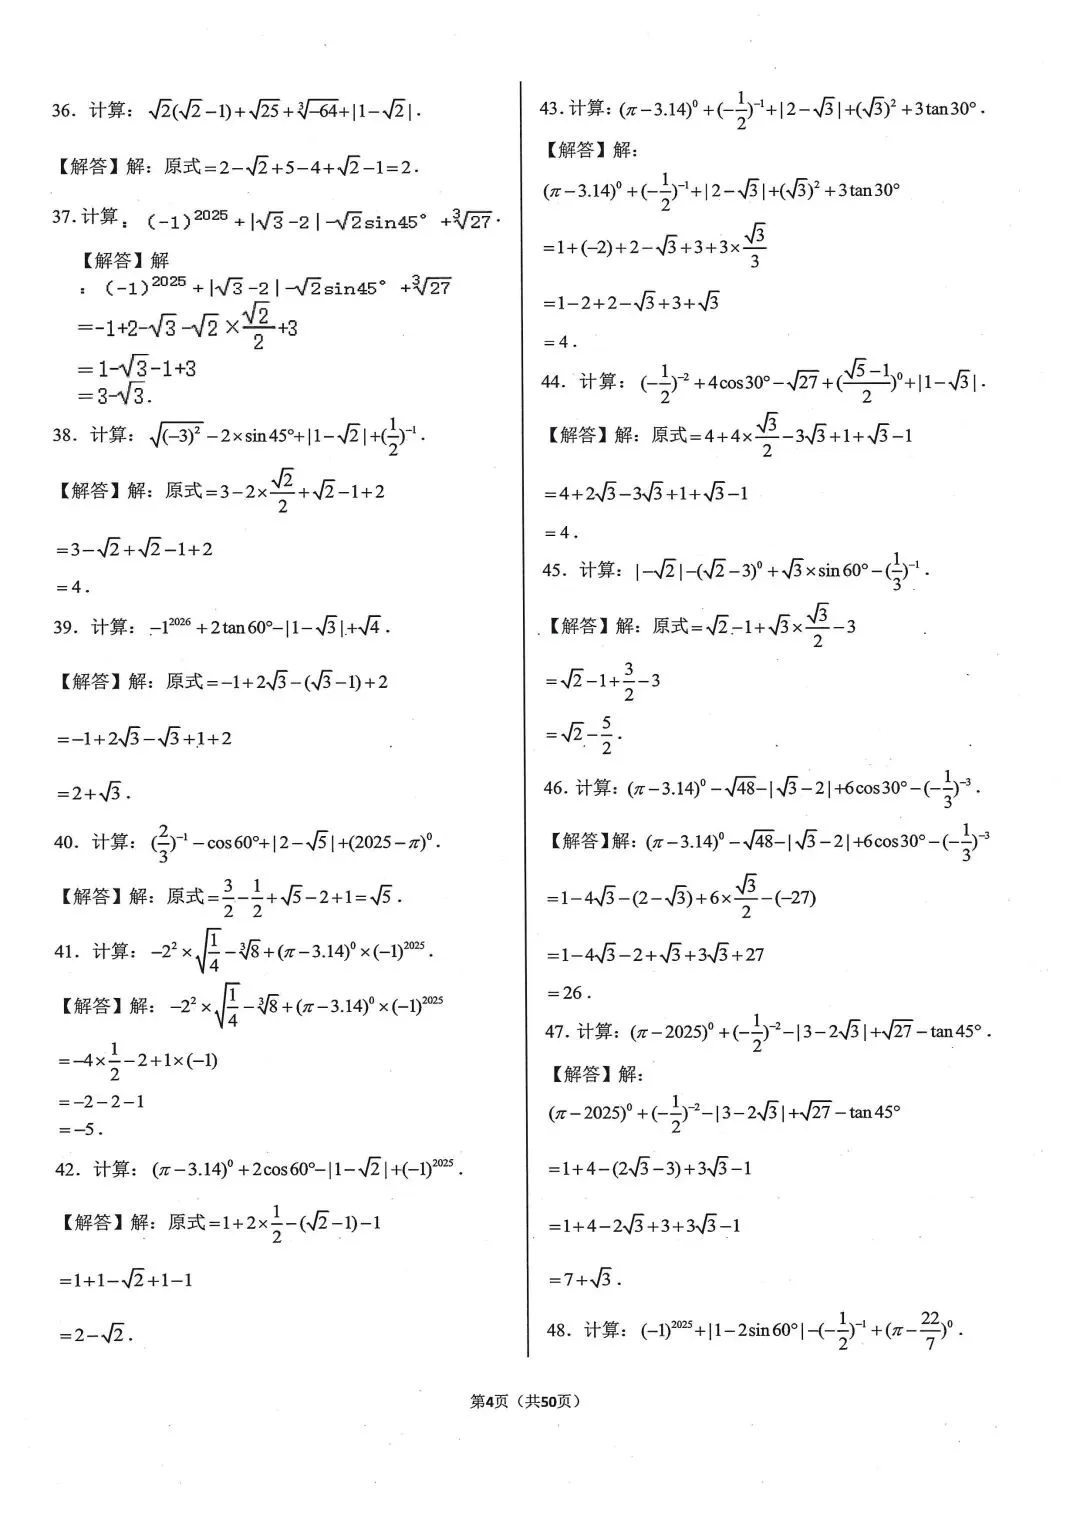 36．计算：√2(√2−1)+√25+∛−64+|1−√2|．
【解答】解：原式=2−√2+5−4+√2−1=2．
37.计算：(−1)²⁰²⁵+|√3−2|−√2sin45°+∛27．
【解答】解
：(−1)²⁰²⁵+|√3−2|−√2sin45°+∛27
=−1+2−√3−√2×√2/2+3
=1−√3−1+3
=3−√3．
38．计算：√(−3)²−2×sin45°+|1−√2|+(1/2)⁻¹．
【解答】解：原式=3−2×√2/2+√2−1+2
=3−√2+√2−1+2
=4．
39．计算：−1²⁰²⁶+2tan60°−|1−√3|+√4．
【解答】解：原式=−1+2√3−(√3−1)+2
=−1+2√3−√3+1+2
=2+√3．
40．计算：(2/3)⁻¹−cos60°+|2−√5|+(2025−π)⁰．
【解答】解：原式=3/2−1/2+√5−2+1=√5．
41．计算：−2²×√(1/4)−∛8+(π−3.14)⁰×(−1)²⁰²⁵．
【解答】解：−2²×√(1/4)−∛8+(π−3.14)⁰×(−1)²⁰²⁵
=−4×1/2−2+1×(−1)
=−2−2−1
=−5．
42．计算：(π−3.14)⁰+2cos60°−|1−√2|+(−1)²⁰²⁵．
【解答】解：原式=1+2×1/2−(√2−1)−1
=1+1−√2+1−1
=2−√2．
43.计算：(π−3.14)⁰+(−1/2)⁻¹+|2−√3|+(√3)²+3tan30°．
【解答】解：
(π−3.14)⁰+(−1/2)⁻¹+|2−√3|+(√3)²+3tan30°
=1+(−2)+2−√3+3+3×√3/3
=1−2+2−√3+3+√3
=4．
44．计算：(−1/2)⁻²+4cos30°−√27+((√5−1)/2)⁰+|1−√3|．
【解答】解：原式=4+4×√3/2−3√3+1+√3−1
=4+2√3−3√3+1+√3−1
=4．
45．计算：|−√2|−(√2−3)⁰+√3×sin60°−(1/3)⁻¹．
【解答】解：原式=√2−1+√3×√3/2−3
=√2−1+3/2−3
=√2−5/2．
46．计算：(π−3.14)⁰−√48−|√3−2|+6cos30°−(−1/3)⁻³．
【解答】解：(π−3.14)⁰−√48−|√3−2|+6cos30°−(−1/3)⁻³
=1−4√3−(2−√3)+6×√3/2−(−27)
=1−4√3−2+√3+3√3+27
=26．
47．计算：(π−2025)⁰+(−1/2)⁻²−|3−2√3|+√27−tan45°．
【解答】解：
(π−2025)⁰+(−1/2)⁻²−|3−2√3|+√27−tan45°
=1+4−(2√3−3)+3√3−1
=1+4−2√3+3+3√3−1
=7+√3．
48．计算：(−1)²⁰²⁵+|1−2sin60°|−(−1/2)⁻¹+(π−22/7)⁰．
第4页（共50页）